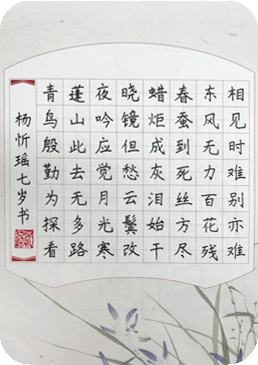 相见时难别亦难
东风无力百花残
春蚕到死丝方尽
蜡炬成灰泪始干
晓镜但愁云鬓改
夜吟应觉月光寒
蓬山此去无多路
青鸟殷勤为探看
杨忻瑶七岁书